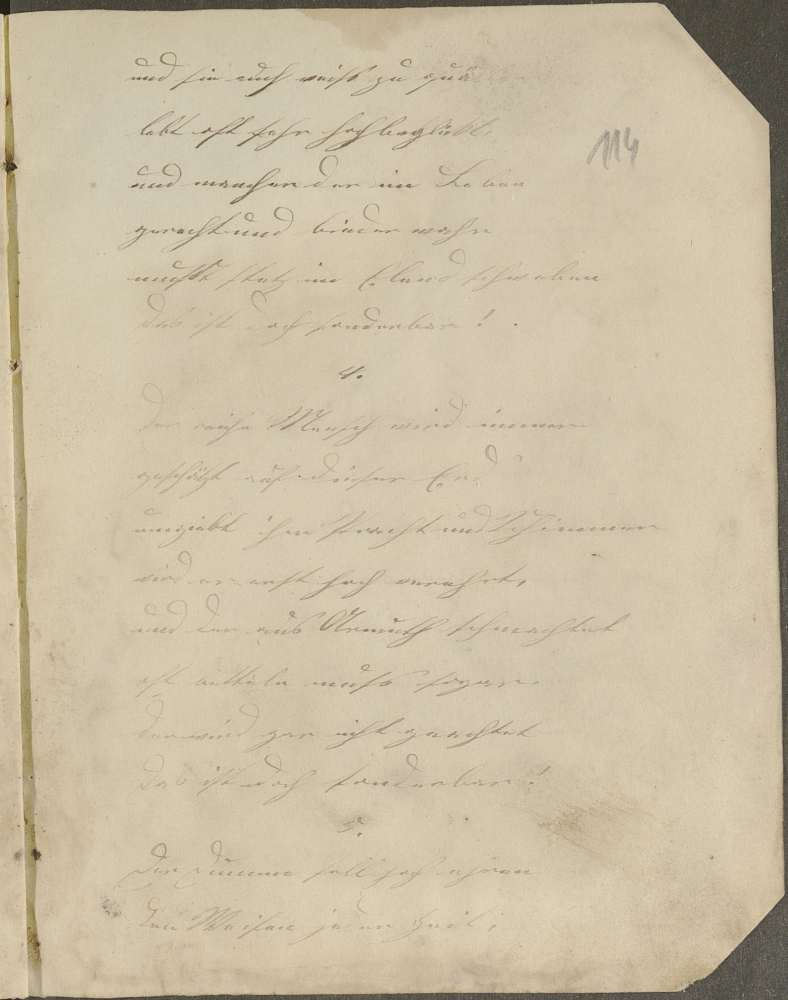 und sie auch reich zu
lebt oft sehr hochbeglückt,
114
und mancher der im Leben
gerecht und bieder wahr
muß stets im Elend schweben
das ist doch sonderbar!
4.
Der reiche Mensch wird immer
geschätzt auf dieser Erd
umgiebt ihn Pracht und Schimmer
wird er erst hoch verehrt,
und der aus Armuth schmachtet
oft betteln muß sogar
der wird gar nicht geachtet
das ist doch sonderbar!
5.
Der Dumme soll hoch ehren
den Weisen